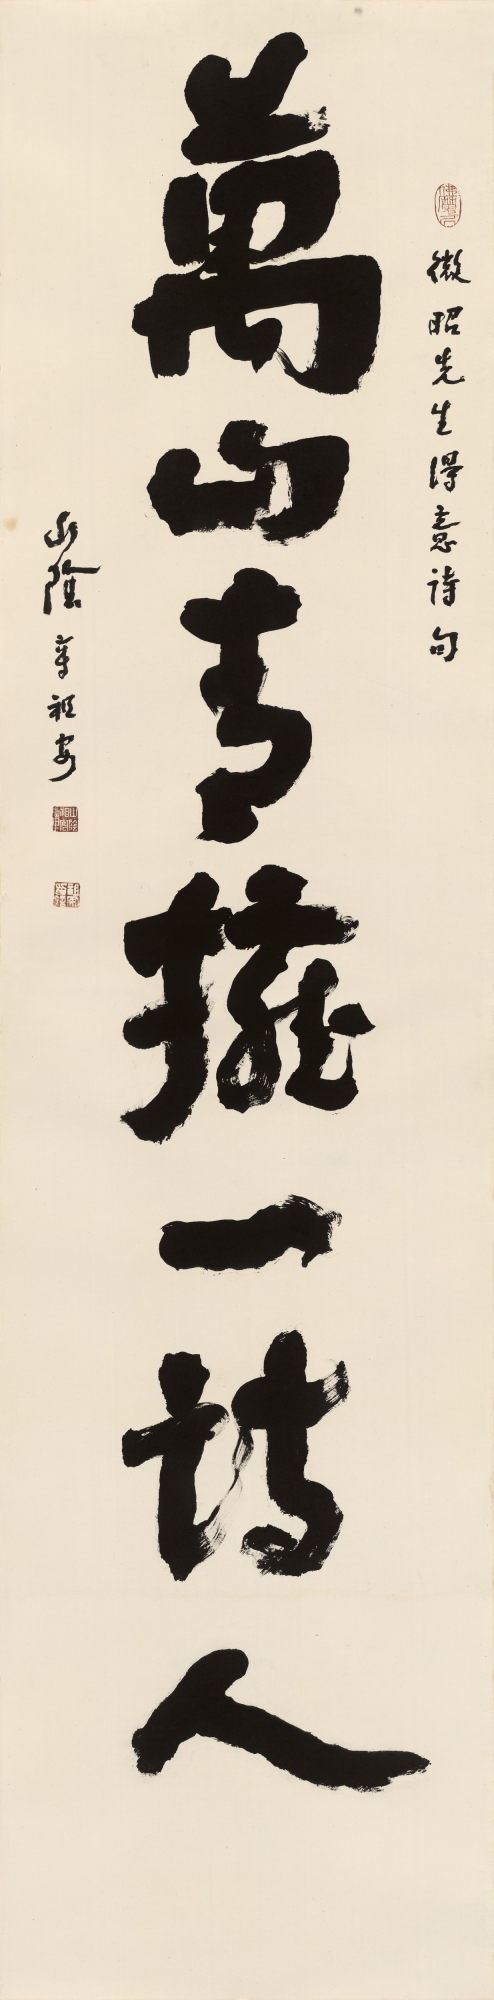 徵昭先生得意詩句
萬山青擁一詩人
山陰章祖安